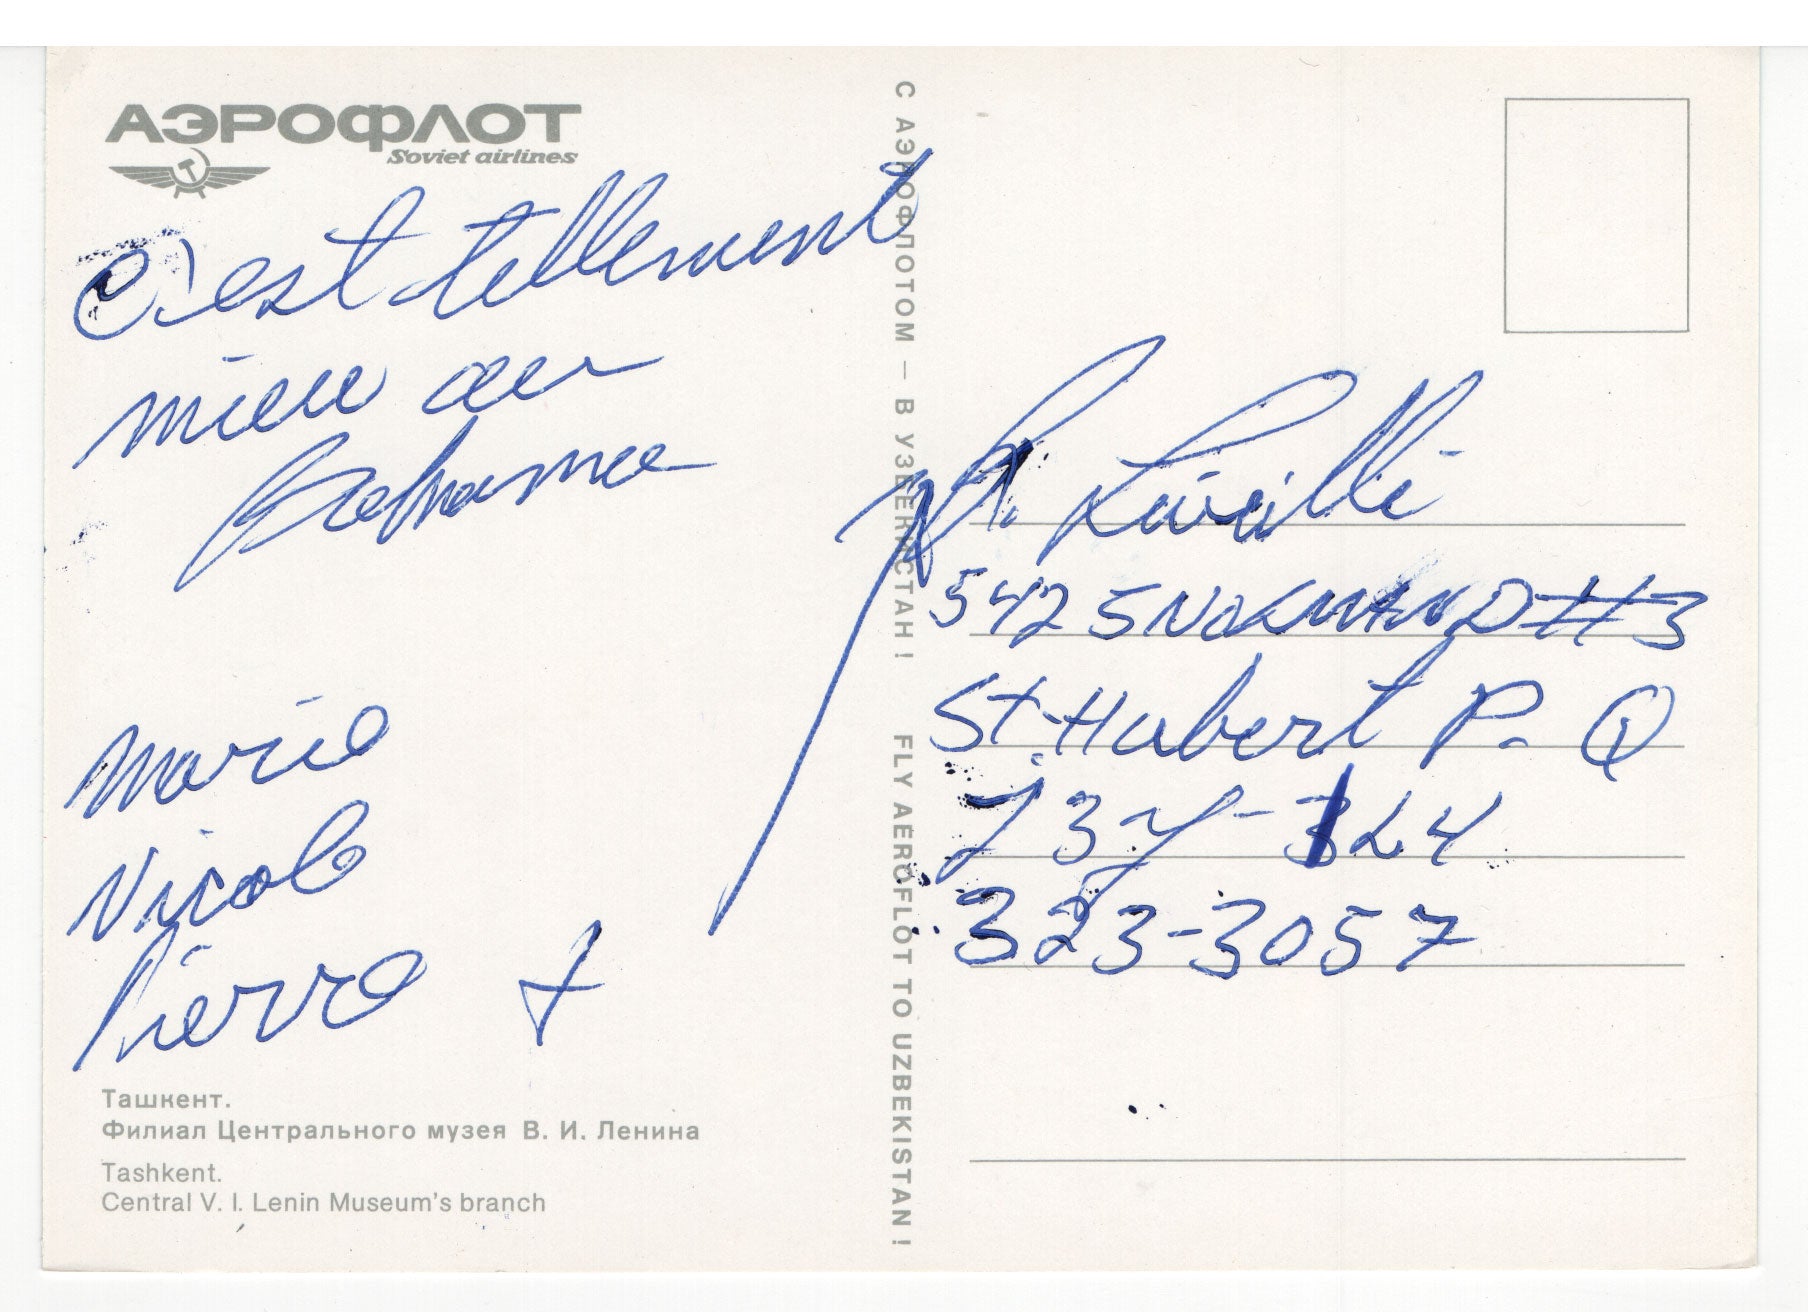 АЭРОФЛОТ
Soviet airlines
C'est tellement
mieu au
Bahama
Mario
Nicole
Pierre
Ташкент.
Филиал Центрального музея В. И. Ленина
Tashkent.
Central V. I. Lenin Museum's branch
С АЭРОФЛОТОМ — В УЗБЕКИСТАН! FLY AEROFLOT TO UZBEKISTAN!
5425 NORMAND #3
St-Hubert P.Q
323-3057